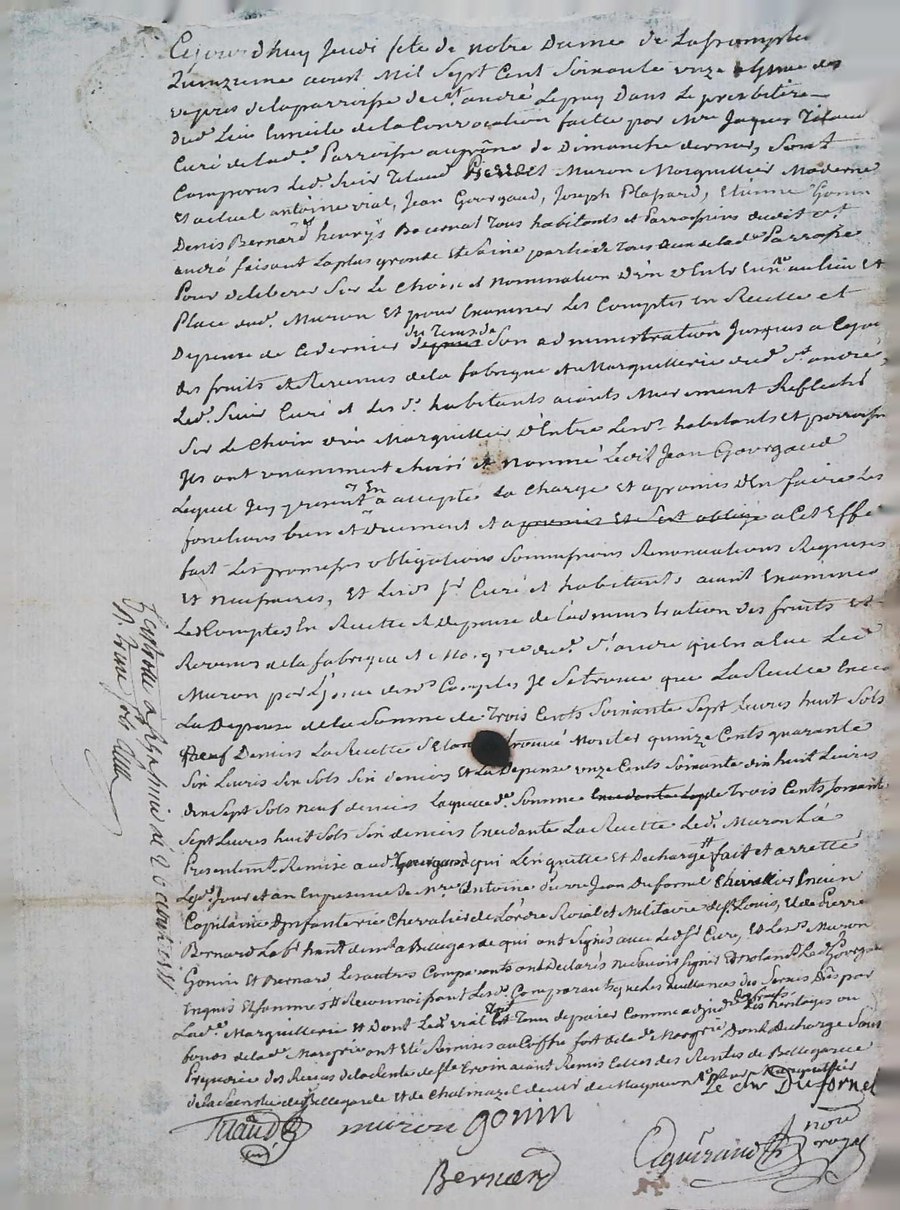 Cejourdhuy Jeudi fete de notre Dame de Lassomption
quinzieme aoust Mil Sept Cent Soixante onze a lissue des
vepres de la parroisse de st andré Le puy Dans Le presbitere
dud. Lieu Ensuite de la Convocation faitte par Mre Jaques Titaud
Curé de lad. Parroisse au prône de Dimanche dernier, Sont
Comparus led. Sieur Titaud Muron Marguillier Moderne
Et actuel antoine vial, Jean Gourgaud, Joseph Plassard, Etienne Gonin
Denis Bernard henrÿs Bournat Tous habitants et Parroissiens dudit st
andré faisant La plus grande Et Saine partie de Tous Ceux de lad. Parroisse
Pour deliberer Sur Le Choix et nomination d'un d'Entre Eux au lieu Et
Place dud. Muron Et pour Examiner Les Comptes En Recette et
Depense de Ce dernier du Tems de Son administration Jusques a Cejour
des fruits et Revenus de la fabrique et Marguillerie dud. st andré,
Led. Sieur Curé et Les d. habitants aiants Murement Reflechi
Sur Le Choix d'un Marguillier d'Entre Lesd. habitants et parroissiens
Ils ont unanimment choisi et nommé Ledit Jean Gourgaud
Lequel Icy present En a accepté La Charge Et a promis d'En faire Les
fonctions bien et duement et a promis Et Sest obligé a Cet Effet
fait Les promesses obligations Soumissions Renonciations Requises
Et necessaires, Et Lesd. sr Curé et habitants aiant Examiné
Les Comptes En Recette et Depense de l'administration des fruits et
Revenus de la fabrique et Margrie dud. st andré qu'en a Eue Led.
Muron par L'issue desd. Comptes Il Se trouve que La Recette Excede
La Depense de la Somme de Trois Cents Soixante Sept Livres huit Sols
neuf Deniers La Recette S'etant trouvé Monter quinze Cents quarante
Six Livres Six Sols Six deniers Et La Depense onze Cents Soixante dix huit Livres
dix Sept Sols Neuf deniers Laquelle d. Somme de Trois Cents Soixante
Sept Livres huit Sols Six deniers Excedante La Recette Led. Muron L'a
Presentemt. Remise aud. Gourgaud qui L'en quitte Et Decharge fait et arretté
Led. Jour et an En presence de Mre Antoine Pierre Jean Dufornel Chevallier Encien
Capitaine d'infanterie Chevalier de L'ordre Roial et Militaire de st Louis, Et de Pierre
Bernard Labr. hantt demt a Bellegarde qui ont Signés avec Led. sr Curé, Et Lesd. Muron
Gonin Et Bernard Les autres Comparants ont Declarés ne Savoir Signer Et Led. Gourgaud
Enquis Et sommés Reconnoissant Lesd. Comparants que Les quittances des Sommes Dües par
Lad. Marguillerie Et Dont Led. vial Est Tenu de paier Comme adjud. des fruits des heritages ou
fonds de lad. Margrie ont Eté Remises au Coffre fort de lad. Margrie Dont Decharge Sans
Prejudice des Recus de la Rente de ste Croix aiant Remis Celles des Rentes de Bellegarde
de Bellegarde Et de Chalmazel
Le Chr Dufornel
Titaud
curé
muron
gonin
Bernard
Caguerand
notre
royal
Controllé a le 20